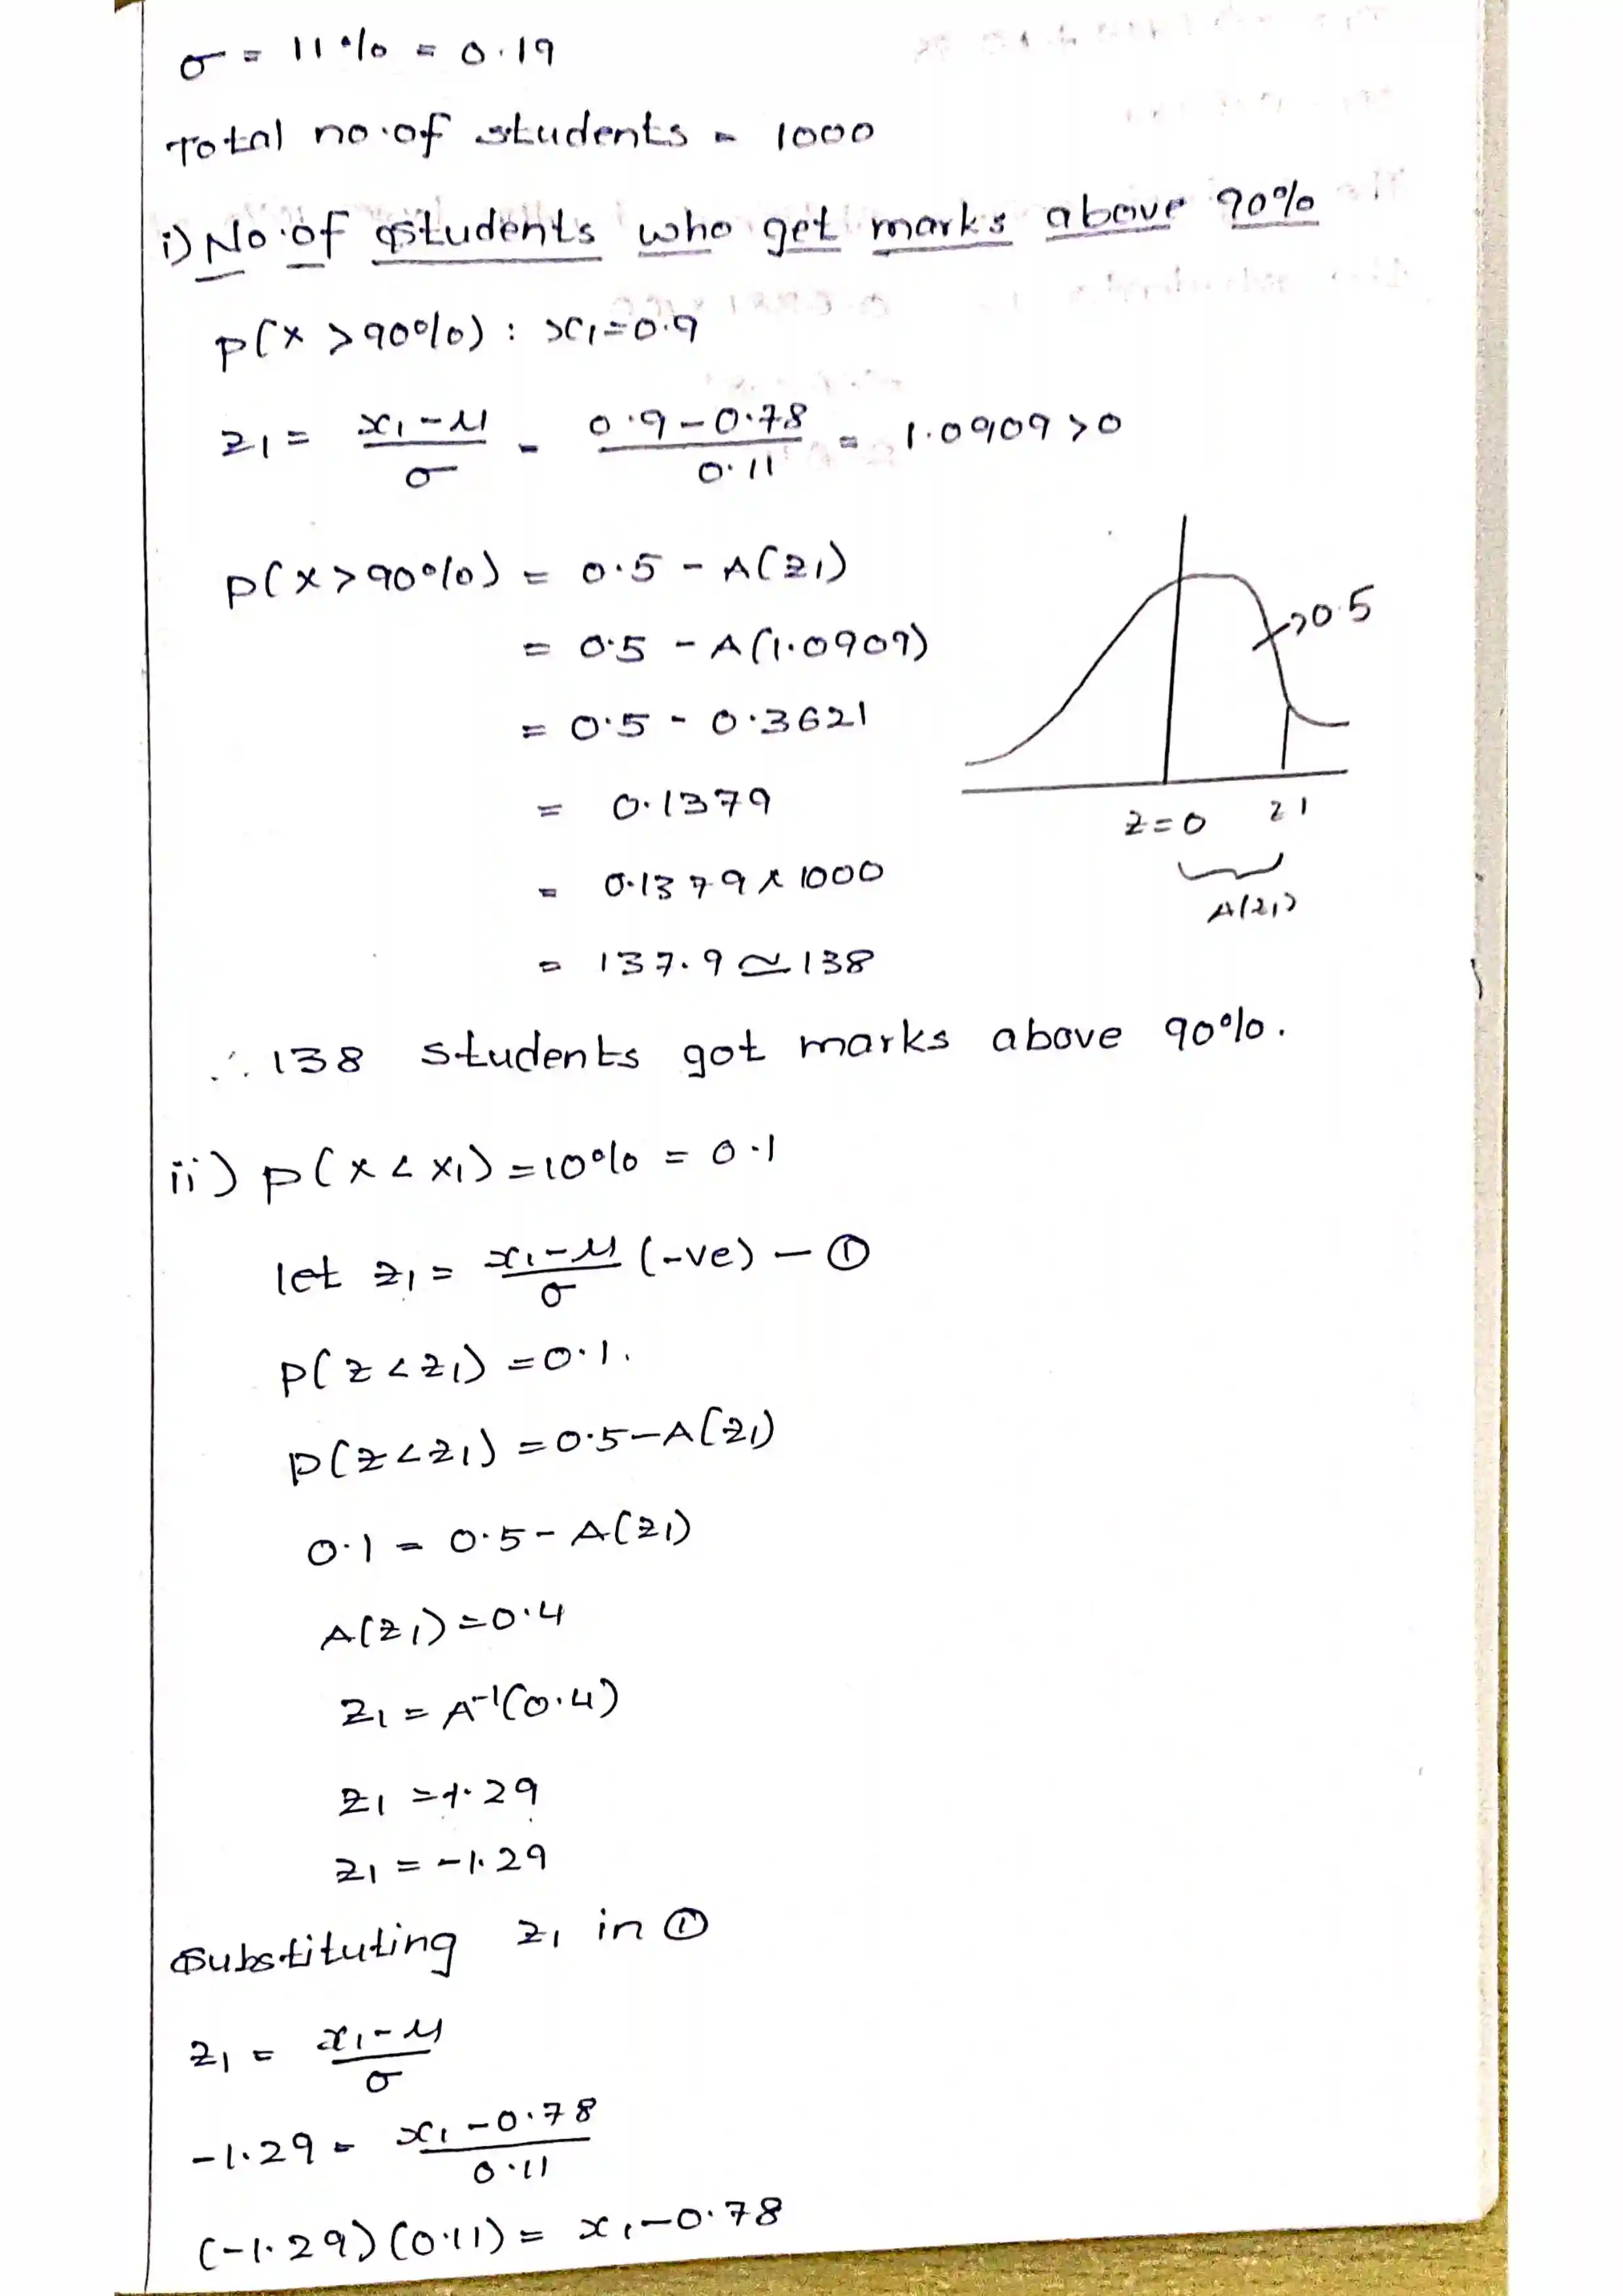 σ = 11% = 0.19
Total no.of students = 1000
i) No.of students who get marks above 90%
P(x > 90%) : x1=0.9
z1 = x1-μ/σ = 0.9-0.78/0.11 = 1.0909>0
P(x>90%) = 0.5 - A(z1)
= 0.5 - A(1.0909)
= 0.5 - 0.3621
= 0.1379
= 0.1379 x 1000
= 137.9 ≃ 138
0.5
z=0 z1
A(z1)
∴ 138 students got marks above 90%.
ii) P(x < x1) = 10% = 0.1
let z1 = x1-μ/σ (-ve) - ①
P(z < z1) = 0.1.
P(z < z1) = 0.5-A(z1)
0.1 = 0.5 - A(z1)
A(z1) = 0.4
z1 = A-1(0.4)
z1 = 1.29
z1 = -1.29
Substituting z1 in ①
z1 = x1-μ/σ
-1.29 = x1-0.78/0.11
(-1.29)(0.11) = x1-0.78